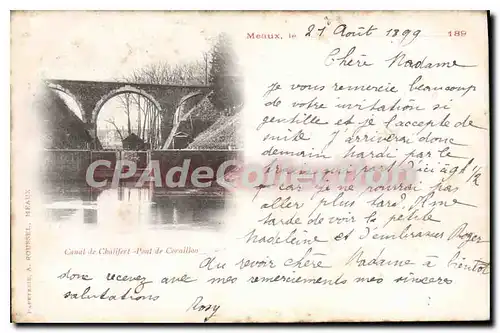 Meaux, le 21 Août 1899 189
Chère Madame
Je vous remercie beaucoup
de votre invitation si
gentille et je l'accepte de
suite J'arriverai donc
demain mardi par le
premier d'ici à 9h 1/2
car je ne pourrai pas
aller plus tard. Il me
tarde de voir la petite
Madeleine et d'embrasser Roger
Au revoir chère Madame à bientôt
donc recevez avec mes remerciements mes sincères
salutations Rosy
Canal de Chalifert - Pont de Cornillon
PAPETERIE, A. ROUSSEL, MEAUX
CPARAMA.COM